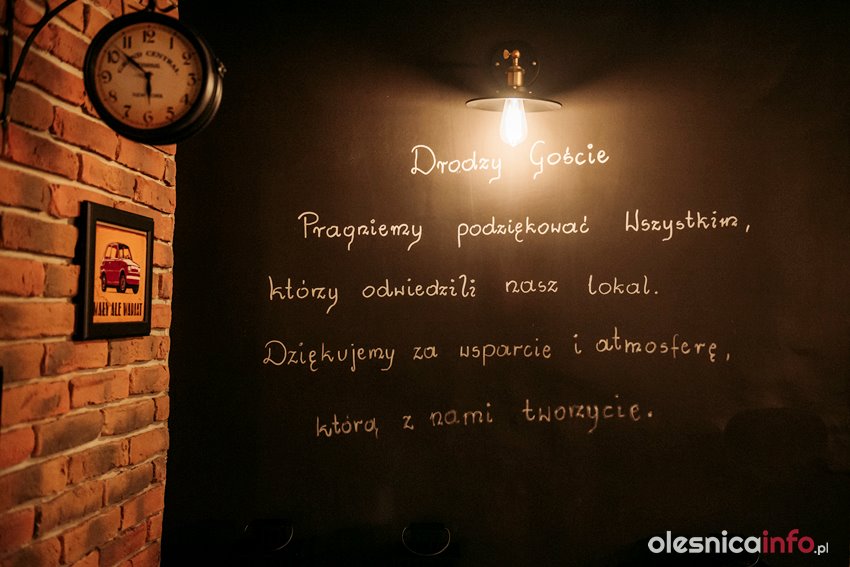 12
1
2
3
4
5
6
7
8
9
10
11
GRAND CENTRAL
NEW YORK
Drodzy Goście
Pragniemy podziękować Wszystkim,
którzy odwiedzili nasz lokal.
Dziękujemy za wsparcie i atmosferę,
którą z nami tworzycie.
MAŁY ALE WARIAT
olesnicainfo.pl